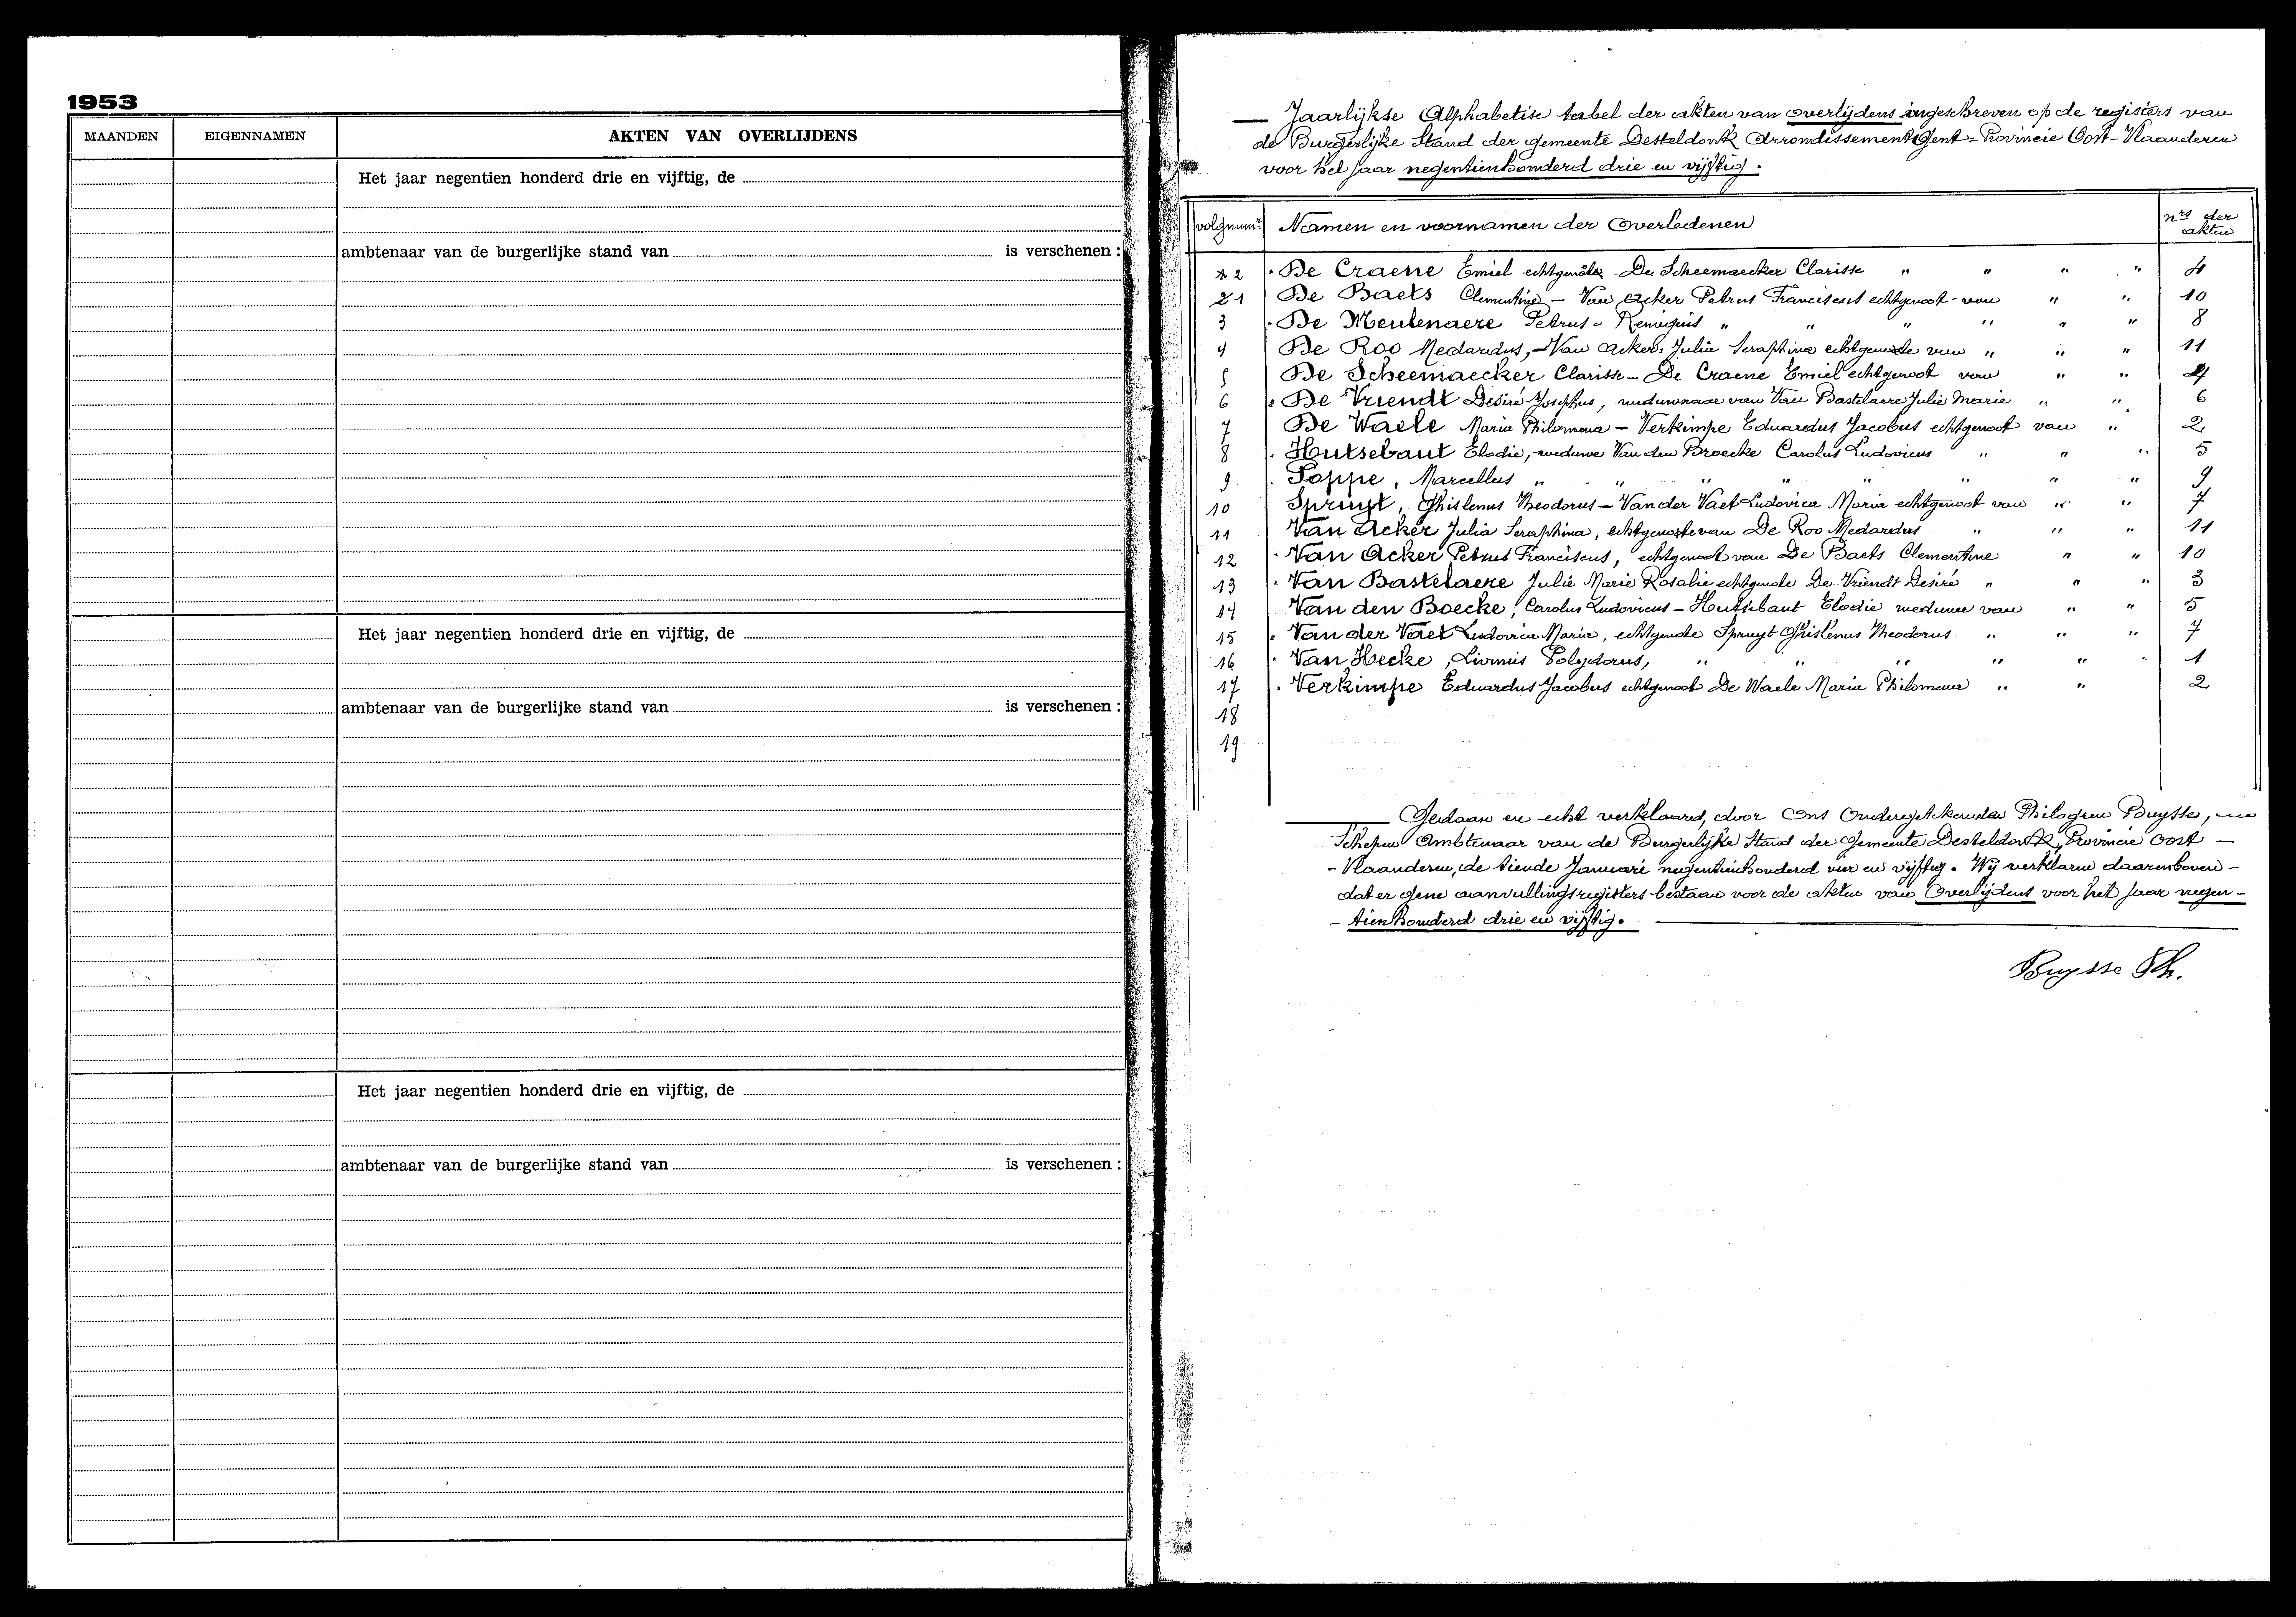 1953
MAANDEN EIGENNAMEN AKTEN VAN OVERLIJDENS
Het jaar negentien honderd drie en vijftig, de
ambtenaar van de burgerlijke stand van is verschenen :
Het jaar negentien honderd drie en vijftig, de
ambtenaar van de burgerlijke stand van is verschenen :
Het jaar negentien honderd drie en vijftig, de
ambtenaar van de burgerlijke stand van is verschenen :
Jaarlijkse Alphabetise tabel der akten van overlijdens ingeschreven op de registers van
de Burgerlijke Stand der gemeente Desteldonk Arrondissement Gent - Provincie Oost-Vlaanderen
voor het jaar negentienhonderd drie en vijftig.
volgnum.s Namen en voornamen der Overledenen nrs der akten
2 De Craene Emiel echtgenote De Scheemaecker Clarisse " " " " 4
1 De Baets Clementine - Van Acker Petrus Franciscus echtgenoot van " " 10
3 De Meulenaere Petrus - Remigius " " " " " " 8
4 De Roo Medardus, - Van Acker Julia Seraphina echtgenote van " " " 11
5 De Scheemaecker Clarisse - De Craene Emiel echtgenoot van " " 4
6 De Vriendt Désiré Josephus, weduwnaar van Van Bastelaere Julie Marie " " 6
7 De Waele Maria Philomena - Verkimpe Eduardus Jacobus echtgenoot van " 2
8 Hutsebaut Elodie, weduwe Van den Broecke Carolus Ludovicus " " " 5
9 Poppe, Marcellus " " " " " " " " 9
10 Spruyt, Ghislenus Theodorus - Van der Vaet Ludovica Maria echtgenoot van " " 7
11 Van Acker Julia Seraphina, echtgenote van De Roo Medardus " " " 11
12 Van Acker Petrus Franciscus, echtgenoot van De Baets Clementine " " 10
13 Van Bastelaere Julie Marie Rosalie echtgenote De Vriendt Desiré " " " 3
14 Van den Boecke, Carolus Ludovicus - Hutsebaut Elodie weduwe van " " 5
15 Van der Vaet Ludovica Maria, echtgenote Spruyt Ghislenus Theodorus " " " 7
16 Van Hecke, Livinus Polydorus, " " " " " " 1
17 Verkimpe Eduardus Jacobus echtgenoot De Waele Maria Philomena " " 2
18
19
Gedaan en echt verklaard, door Ons Ondergetekende Philogeen Buysse,
Schepen Ambtenaar van de Burgerlijke Stand der Gemeente Desteldonk, Provincie Oost -
- Vlaanderen, de tiende Januari negentienhonderd vier en vijftig. Wij verklaren daarenboven -
dat er gene aanvullingsregisters bestaan voor de akten van Overlijdens voor het jaar negen -
- tienhonderd drie en vijftig.
Buysse Ph.